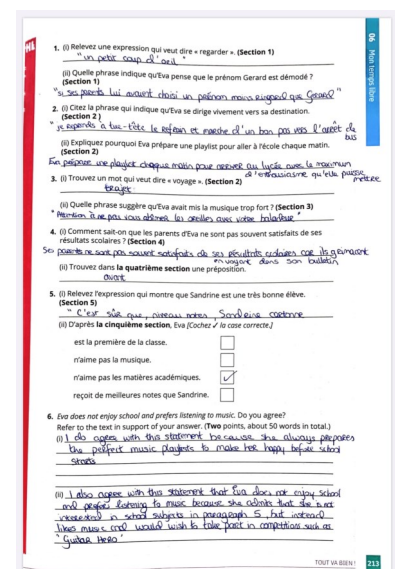 NL
06 Mon temps libre
1. (i) Relevez une expression qui veut dire « regarder ». (Section 1)
"un petit coup d'oeil"
(ii) Quelle phrase indique qu'Eva pense que le prénom Gerard est démodé ?
(Section 1)
"si ses parents lui avaient choisi un prénom moins ringard que Gerard"
2. (i) Citez la phrase qui indique qu'Eva se dirige vivement vers sa destination.
(Section 2 )
"je reprends à tue-tête le refrain et marche d'un bon pas vers l'arrêt de
bus
(ii) Expliquez pourquoi Eva prépare une playlist pour aller à l'école chaque matin.
(Section 2)
Eva prépare une playlist chaque matin pour arriver au lycée avec le maximum
d'enthousiasme qu'elle puisse
mettre
3. (i) Trouvez un mot qui veut dire « voyage ». (Section 2)
trajet
(ii) Quelle phrase suggère qu'Eva avait mis la musique trop fort ? (Section 3)
"Attention à ne pas vous abîmer les oreilles avec votre baladeur"
4. (i) Comment sait-on que les parents d'Eva ne sont pas souvent satisfaits de ses
résultats scolaires ? (Section 4)
Ses parents ne sont pas souvent satisfaits de ses résultats scolaires car ils grimacent
en voyant dans son bulletin
(ii) Trouvez dans la quatrième section une préposition.
avant
5. (i) Relevez l'expression qui montre que Sandrine est une très bonne élève.
(Section 5)
"C'est sûr que, niveau notes, Sandrine cartonne
(ii) D'après la cinquième section, Eva [Cochez ✓ la case correcte.]
est la première de la classe.
n'aime pas la musique.
n'aime pas les matières académiques. ✓
reçoit de meilleures notes que Sandrine.
6. Eva does not enjoy school and prefers listening to music. Do you agree?
Refer to the text in support of your answer. (Two points, about 50 words in total.)
(i) I do agree with this statement because she always prepares
the perfect music playlists to make her happy before school
starts
(ii) I also agree with this statement that Eva does not enjoy school
and prefers listening to music because she admits that she is not
interested in school subjects in paragraph 5, but instead
likes music and would wish to take part in competitions such as
"Guitar Hero"
TOUT VA BIEN ! 213